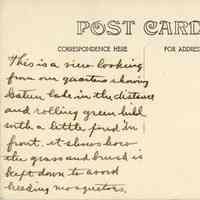 POST CARD
CORRESPONDENCE HERE
FOR ADDRES
This is a view looking
from our quarters showing
Gatun lake in the distance
and rolling green hill
with a little pond in
front, it shows how
the grass and brush is
kept down to avoid
breeding mosquitors.